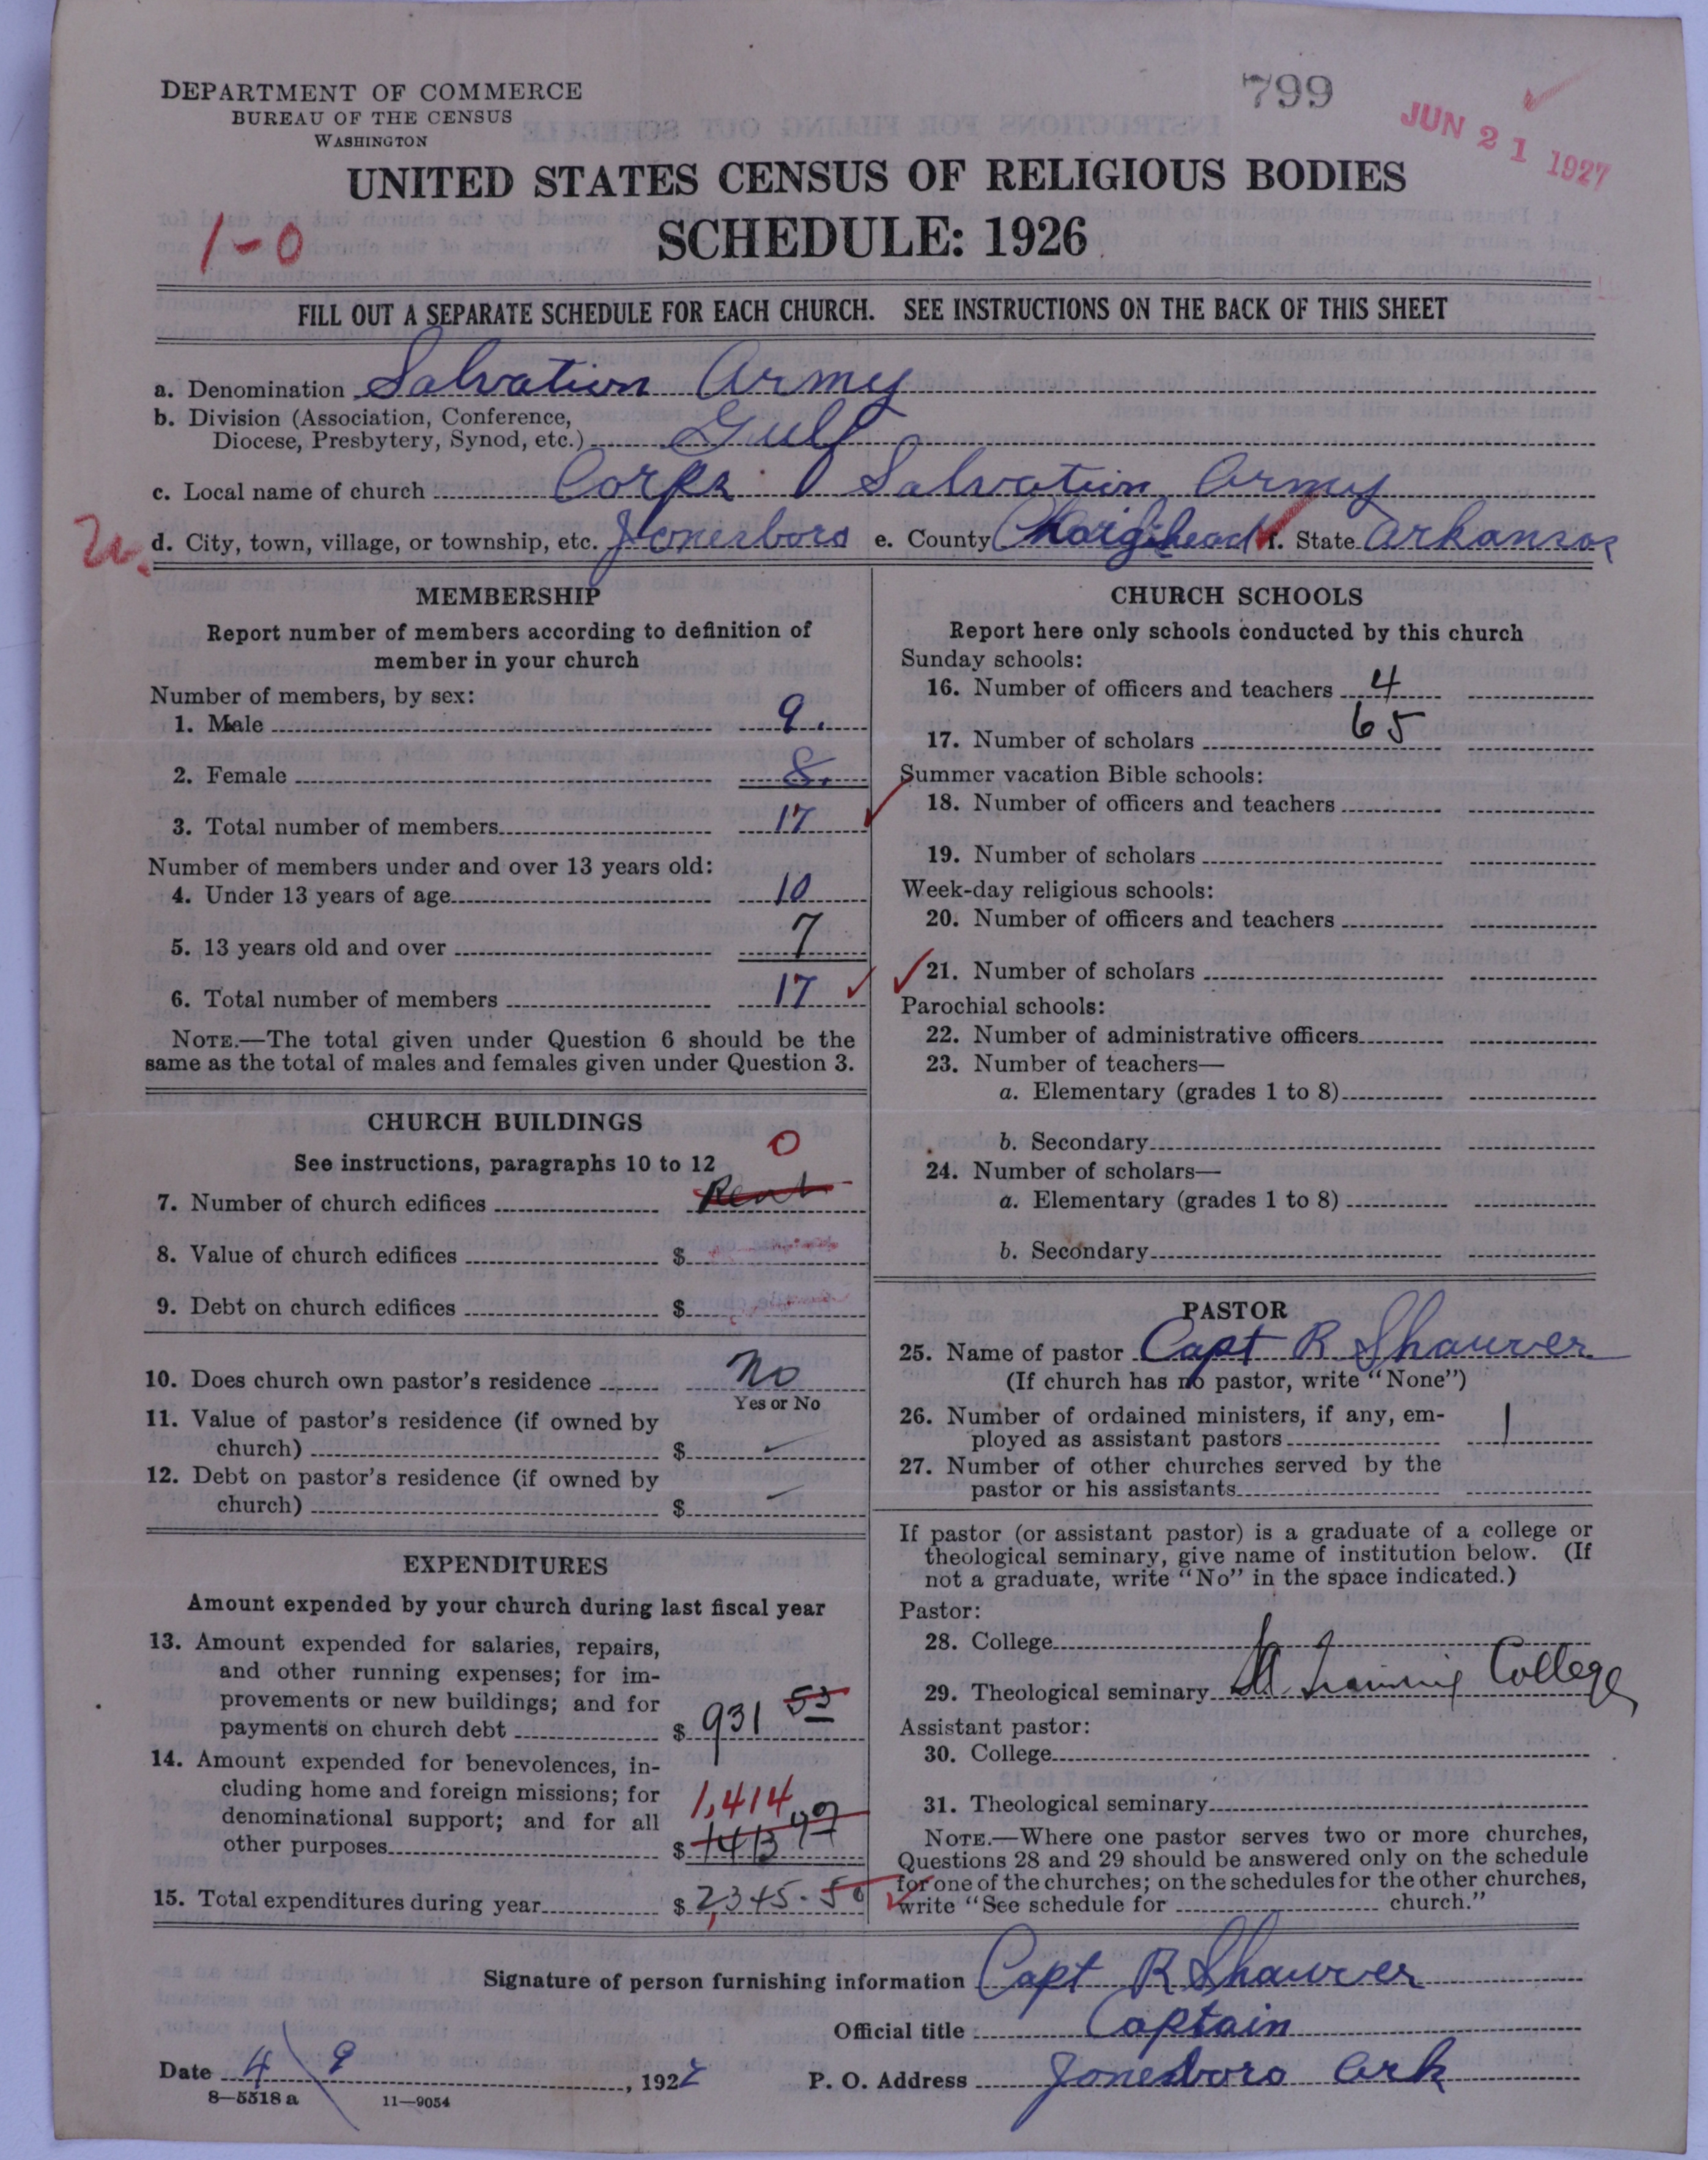 DEPARTMENT OF COMMERCE
BUREAU OF THE CENSUS
WASHINGTON
799
JUN 21 1927
UNITED STATES CENSUS OF RELIGIOUS BODIES
SCHEDULE: 1926
1-0
FILL OUT A SEPARATE SCHEDULE FOR EACH CHURCH. SEE INSTRUCTIONS ON THE BACK OF THIS SHEET
a. Denomination Salvation Army
b. Division (Association, Conference,
Diocese, Presbytery, Synod, etc.) Gulf
c. Local name of church Corps Salvation Army
d. City, town, village, or township, etc. Jonesboro e. County Craighead f. State Arkansas
MEMBERSHIP
Report number of members according to definition of
member in your church
Number of members, by sex:
1. Male 9.
2. Female 8.
3. Total number of members 17
Number of members under and over 13 years old:
4. Under 13 years of age 10
5. 13 years old and over 7
6. Total number of members 17
NOTE.—The total given under Question 6 should be the
same as the total of males and females given under Question 3.
CHURCH BUILDINGS
See instructions, paragraphs 10 to 12 0
7. Number of church edifices Rent
8. Value of church edifices $
9. Debt on church edifices $
10. Does church own pastor's residence No
Yes or No
11. Value of pastor's residence (if owned by
church) $
12. Debt on pastor's residence (if owned by
church) $
EXPENDITURES
Amount expended by your church during last fiscal year
13. Amount expended for salaries, repairs,
and other running expenses; for im-
provements or new buildings; and for
payments on church debt $ 931 53
14. Amount expended for benevolences, in-
cluding home and foreign missions; for 1,414
denominational support; and for all
other purposes $ 1413 97
15. Total expenditures during year $ 2,345.50
CHURCH SCHOOLS
Report here only schools conducted by this church
Sunday schools:
16. Number of officers and teachers 4
17. Number of scholars 65
Summer vacation Bible schools:
18. Number of officers and teachers
19. Number of scholars
Week-day religious schools:
20. Number of officers and teachers
21. Number of scholars
Parochial schools:
22. Number of administrative officers
23. Number of teachers—
a. Elementary (grades 1 to 8)
b. Secondary
24. Number of scholars—
a. Elementary (grades 1 to 8)
b. Secondary
PASTOR
25. Name of pastor Capt R Shauver
(If church has no pastor, write "None")
26. Number of ordained ministers, if any, em-
ployed as assistant pastors 1
27. Number of other churches served by the
pastor or his assistants
If pastor (or assistant pastor) is a graduate of a college or
theological seminary, give name of institution below. (If
not a graduate, write "No" in the space indicated.)
Pastor:
28. College
29. Theological seminary Training College
Assistant pastor:
30. College
31. Theological seminary
NOTE.—Where one pastor serves two or more churches,
Questions 28 and 29 should be answered only on the schedule
for one of the churches; on the schedules for the other churches,
write "See schedule for church."
Signature of person furnishing information Capt R Shauver
Official title Captain
Date 4 \ 9, 1927
P. O. Address Jonesboro Ark
8—5518 a 11—9054